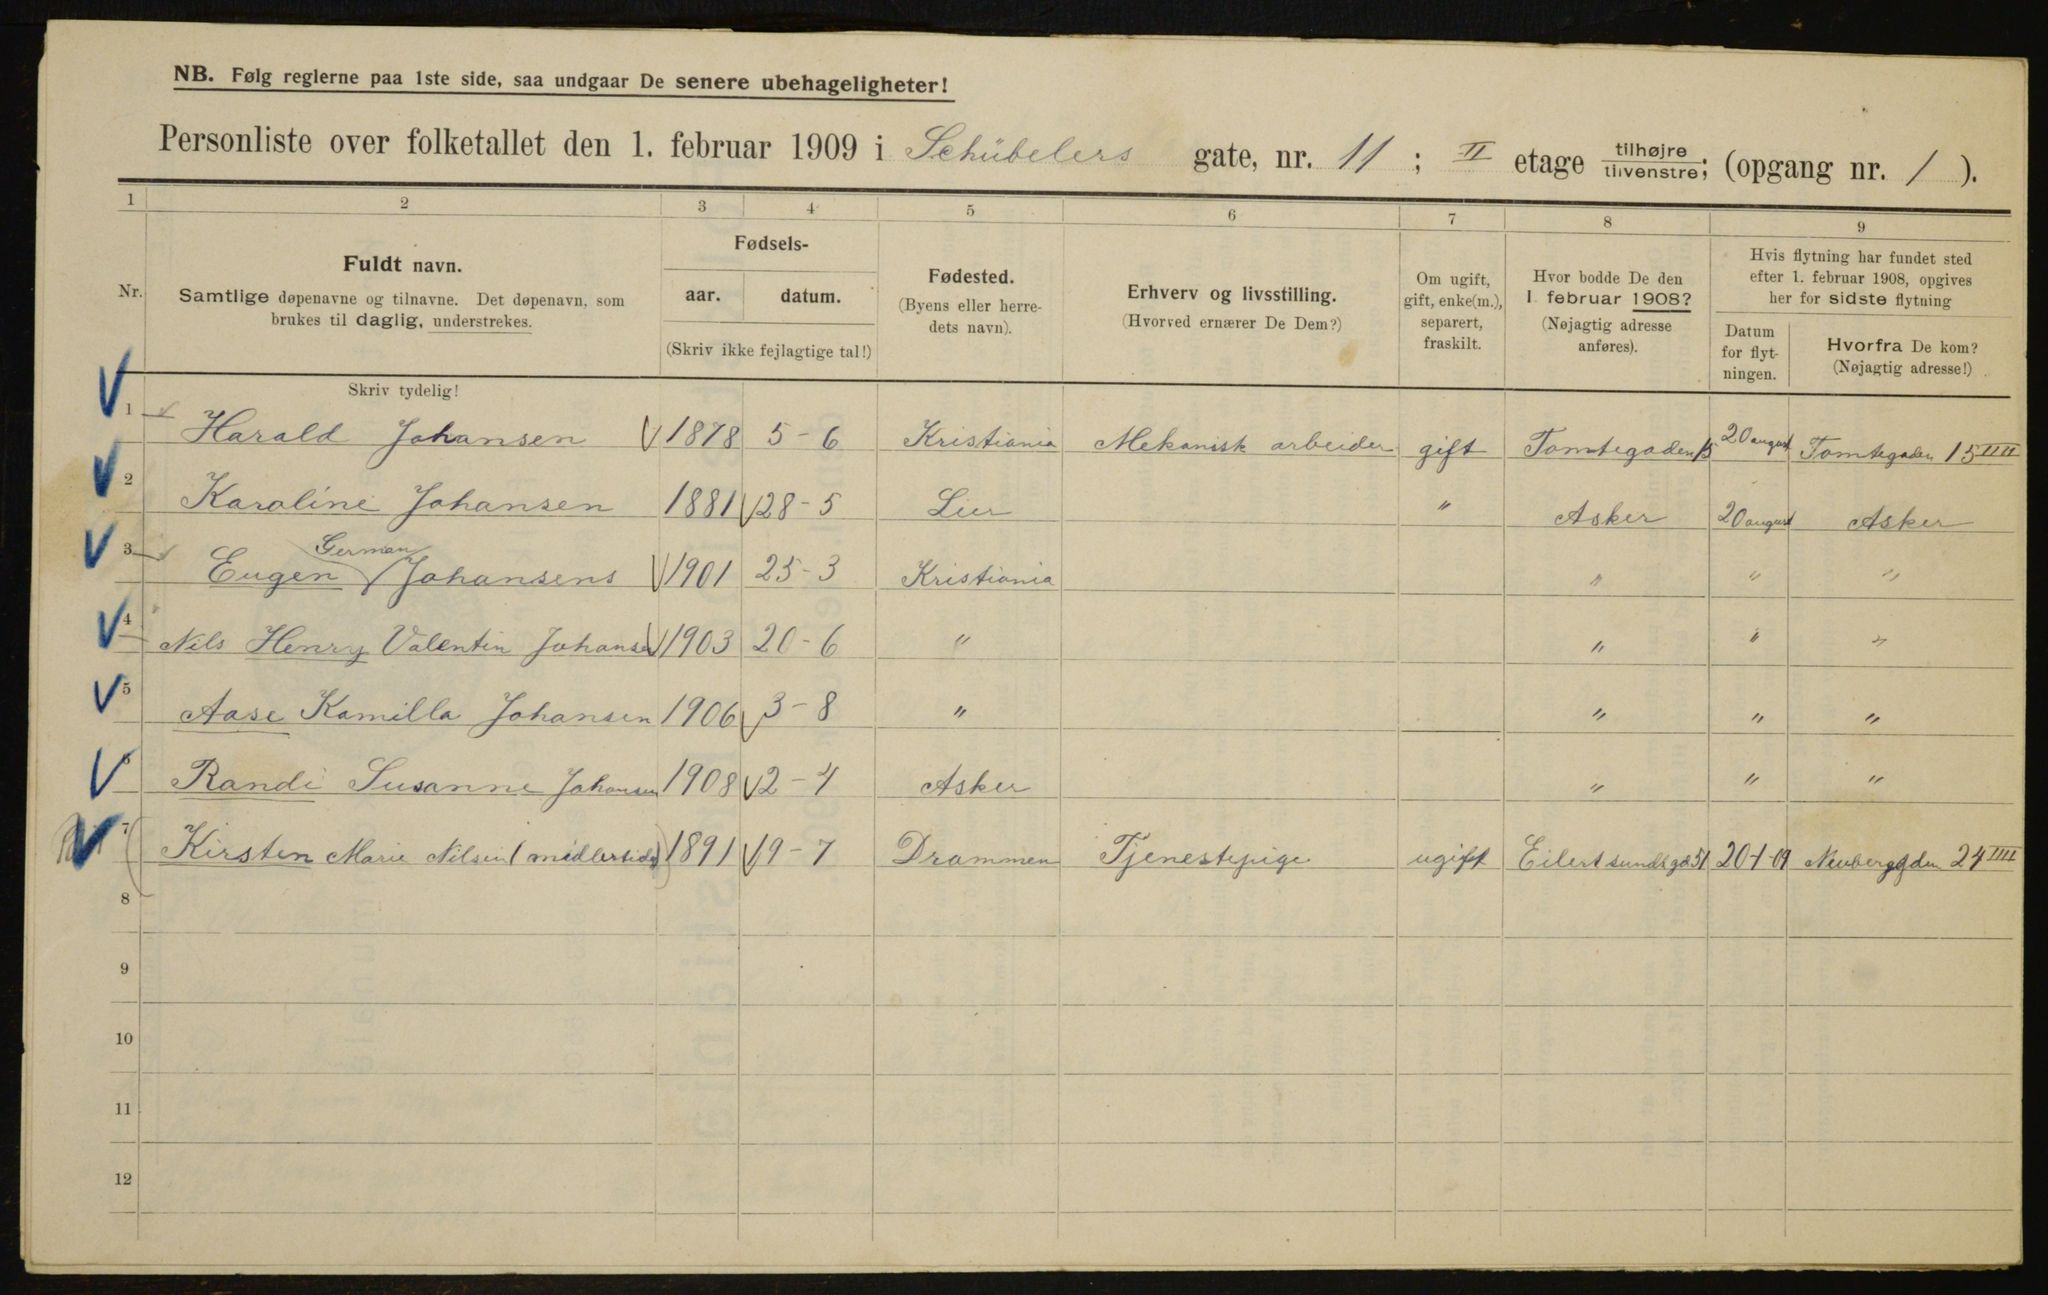 NB. Følg reglerne paa 1ste side, saa undgaar De senere ubehageligheter!
Personliste over folketallet den 1. februar 1909 i Schübelers gate, nr. 11 ; II etage tilhøjre / tilvenstre; (opgang nr. 1 ).
1 2 3 4 5 6 7 8 9
Nr.
Fuldt navn.
Samtlige døpenavne og tilnavne. Det døpenavn, som
brukes til daglig, understrekes.
Skriv tydelig!
Fødsels-
aar. datum.
(Skriv ikke fejlagtige tal!)
Fødested.
(Byens eller herre-
dets navn).
Erhverv og livsstilling.
(Hvorved ernærer De Dem?)
Om ugift,
gift, enke(m.),
separert,
fraskilt.
Hvor bodde De den
1. februar 1908?
(Nøjagtig adresse
anføres).
Hvis flytning har fundet sted
efter 1. februar 1908, opgives
her for sidste flytning
Datum
for flyt-
ningen.
Hvorfra De kom?
(Nøjagtig adresse!)
1 Harald Johansen 1878 5-6 Kristiania Mekanisk arbeider gift Tomtegaden 15 20 august Tomtegaden 15 IIII
2 Karoline Johansen 1881 28-5 Lier " Asker 20 august Asker
3 Eugen German Johansens 1901 25-3 Kristiania " " "
4 Nils Henry Valentin Johansen 1903 20-6 " " " "
5 Aase Kamilla Johansen 1906 3-8 " " " "
6 Randi Susanne Johansen 1908 2-4 Asker " " "
7 (Kirsten Marie Nilsen (midlertidig) 1891 19-7 Drammen Tjenestepige ugift Eilert sundts gd 51 20-1-09 Neuberggden 24 IIII
8
9
10
11
12